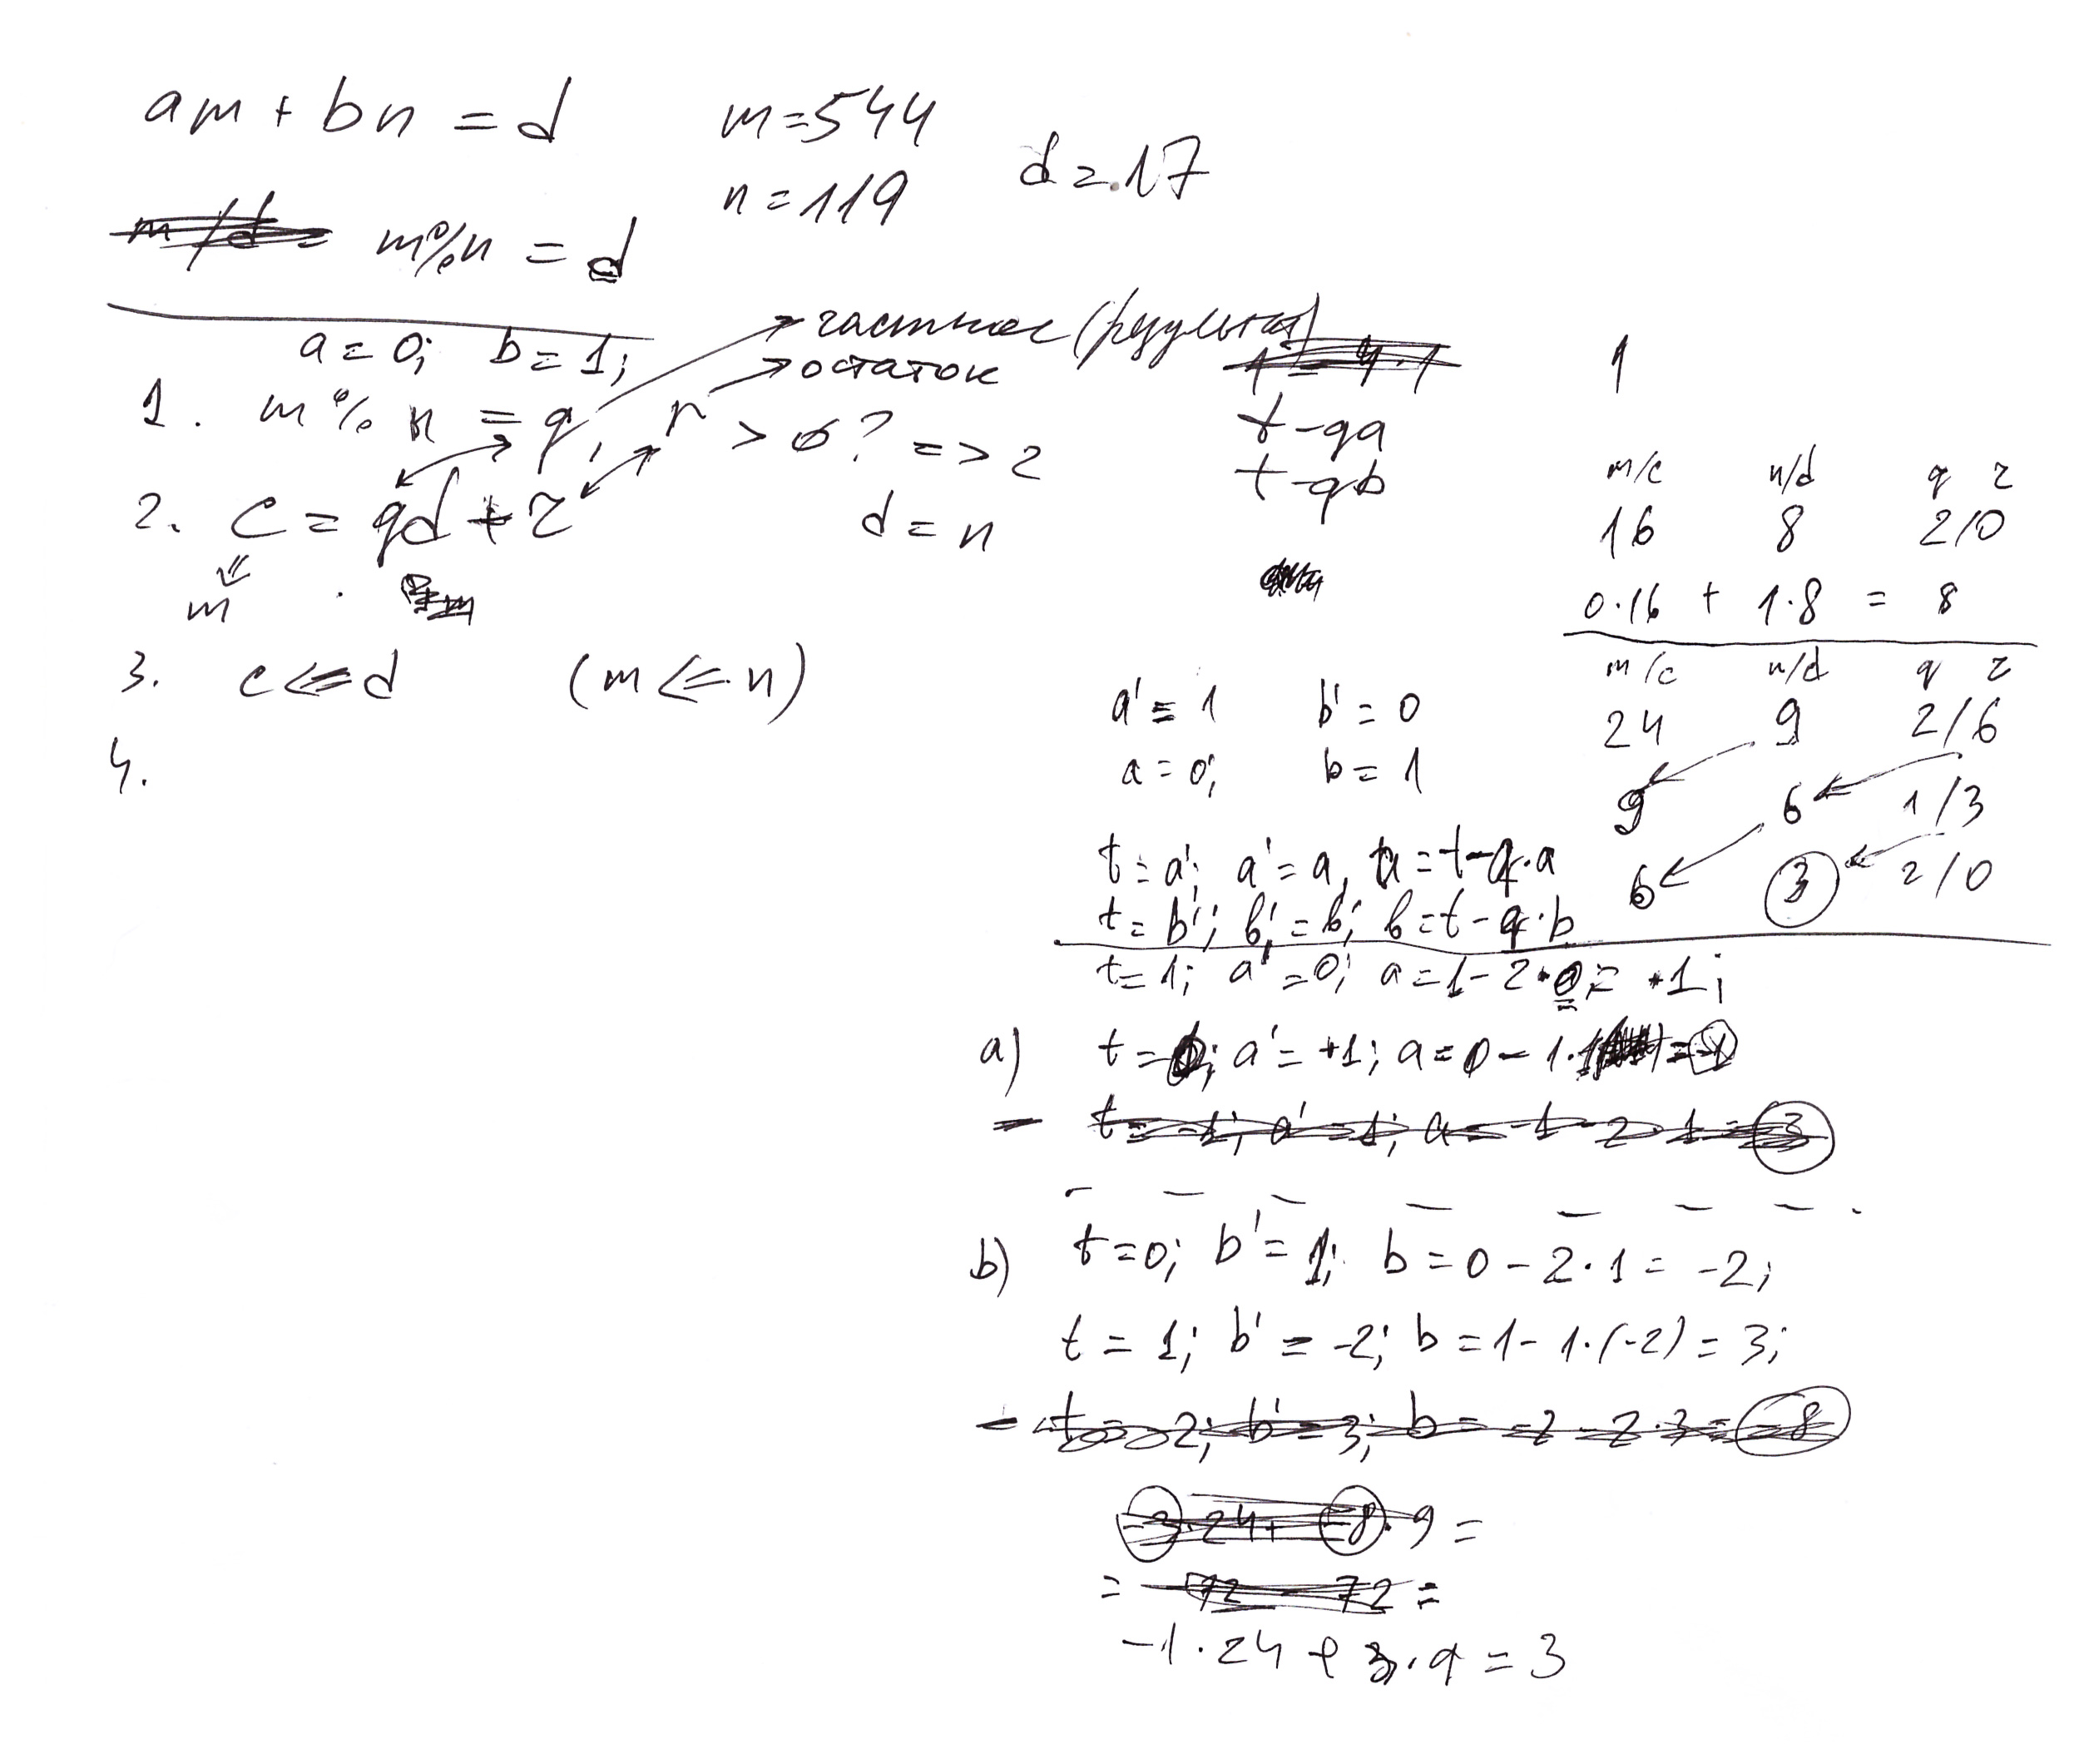 am + bn = d
m = 544
n = 119
d = 17
m/d = m%n = d
a = 0; b = 1;
частное (результат)
остаток
1. m % n = q, r > 0? => 2
2. c = qd + r
d = n
m
3. c <= d (m <= n)
4.
t - qa
t - qb
1
m/c n/d q r
16 8 2/0
0·16 + 1·8 = 8
m/c n/d q r
24 9 2/6
9 6 1/3
6 3 2/0
a' = 1 b' = 0
a = 0; b = 1
t = a'; a' = a, a = t - q·a
t = b'; b' = b; b = t - q·b
t = 1; a' = 0; a = 1 - 2·0 = +1;
a) t = 0; a' = +1; a = 0 - 1·1 = -1
t = -1; a' = 1; a = -1 - 2·1 = 3
b) t = 0; b' = 1; b = 0 - 2·1 = -2;
t = 1; b' = -2; b = 1 - 1·(-2) = 3;
t = -2; b' = 3; b = -2 - 2·3 = -8
-3·24 + -8·9 =
= 72 - 72 =
-1·24 + 3·9 = 3